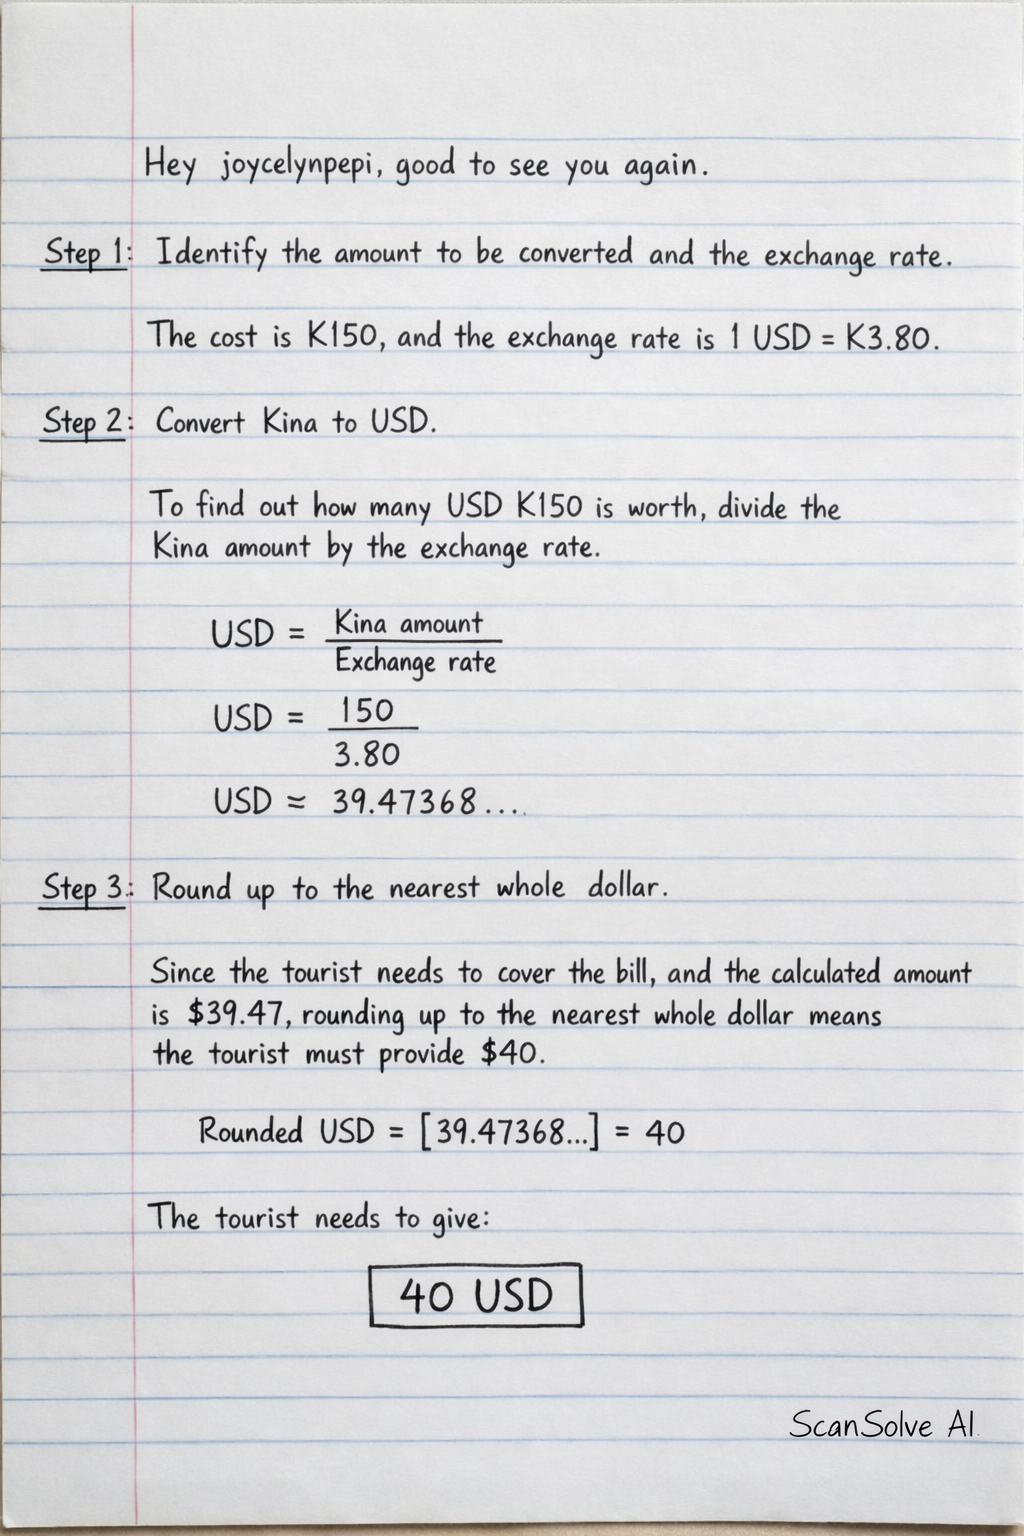 Hey joycelynpepi, good to see you again.
Step 1: Identify the amount to be converted and the exchange rate.
The cost is K150, and the exchange rate is 1 USD = K3.80.
Step 2: Convert Kina to USD.
To find out how many USD K150 is worth, divide the
Kina amount by the exchange rate.
USD = Kina amount
Exchange rate
USD = 150
3.80
USD ≈ 39.47368....
Step 3: Round up to the nearest whole dollar.
Since the tourist needs to cover the bill, and the calculated amount
is $39.47, rounding up to the nearest whole dollar means
the tourist must provide $40.
Rounded USD = [39.47368...] = 40
The tourist needs to give:
40 USD
ScanSolve AI